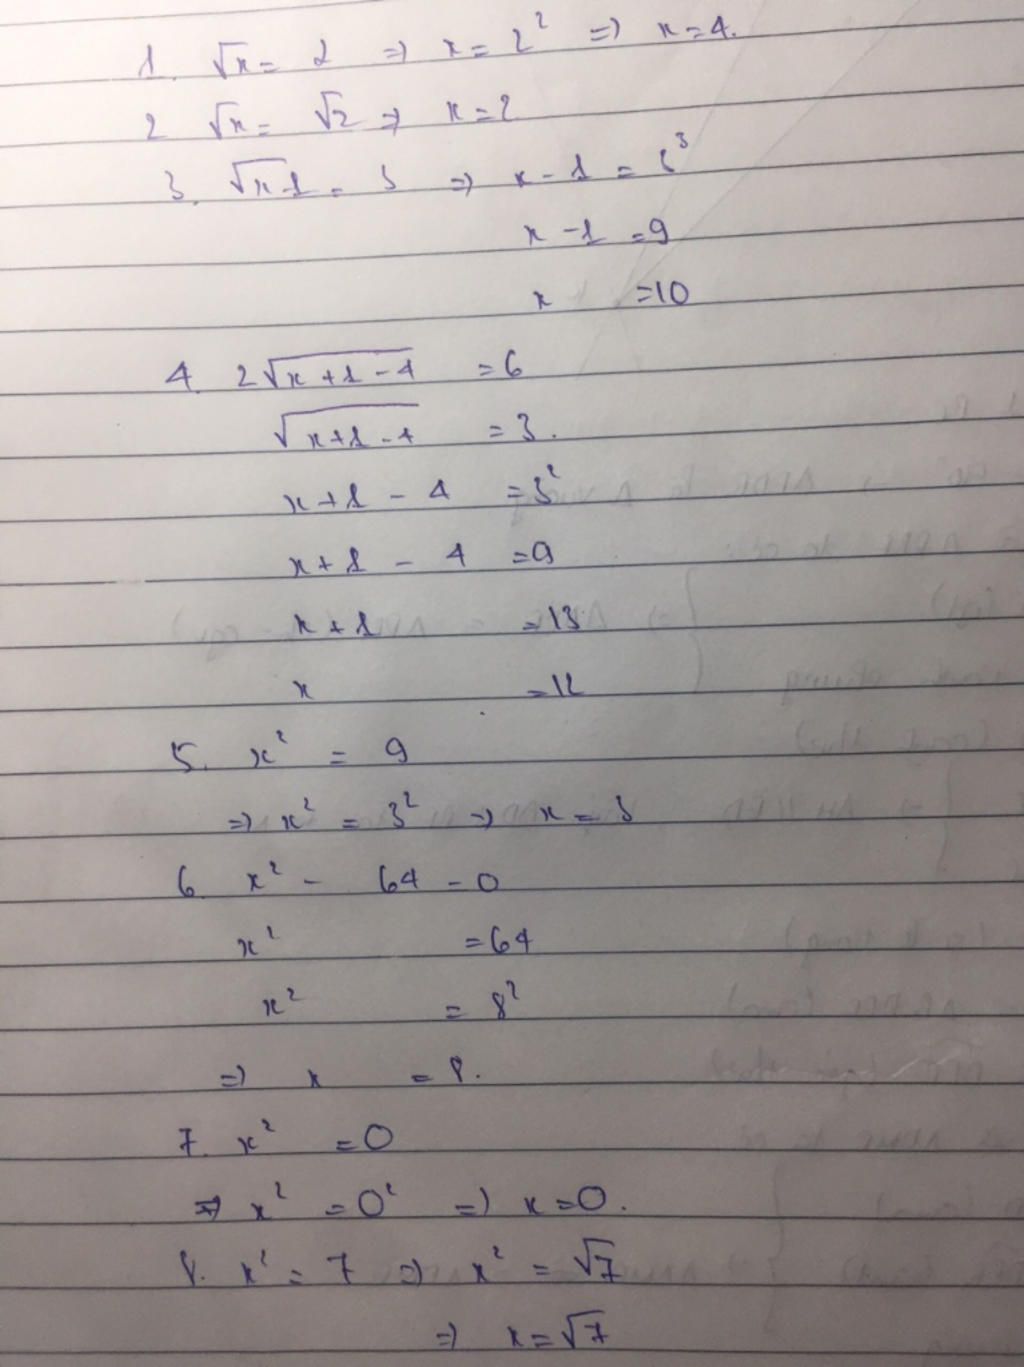 1. √x = 2 => x = 2² => x = 4.
2 √x = √2 => x = 2
3. √x-1 = 3 => x - 1 = 3³
x - 1 = 9
x = 10
4. 2√x + 1 - 4 = 6
√x + 1 - 4 = 3.
x + 1 - 4 = 3²
x + 1 - 4 = 9
x + 1 = 13
x = 12
5. x² = 9
=> x² = 3² => x = 3
6. x² - 64 = 0
x² = 64
x² = 8²
=> x = 8.
7. x² = 0
=> x² = 0² => x = 0.
8. x² = 7 => x² = √7
=> x = √7